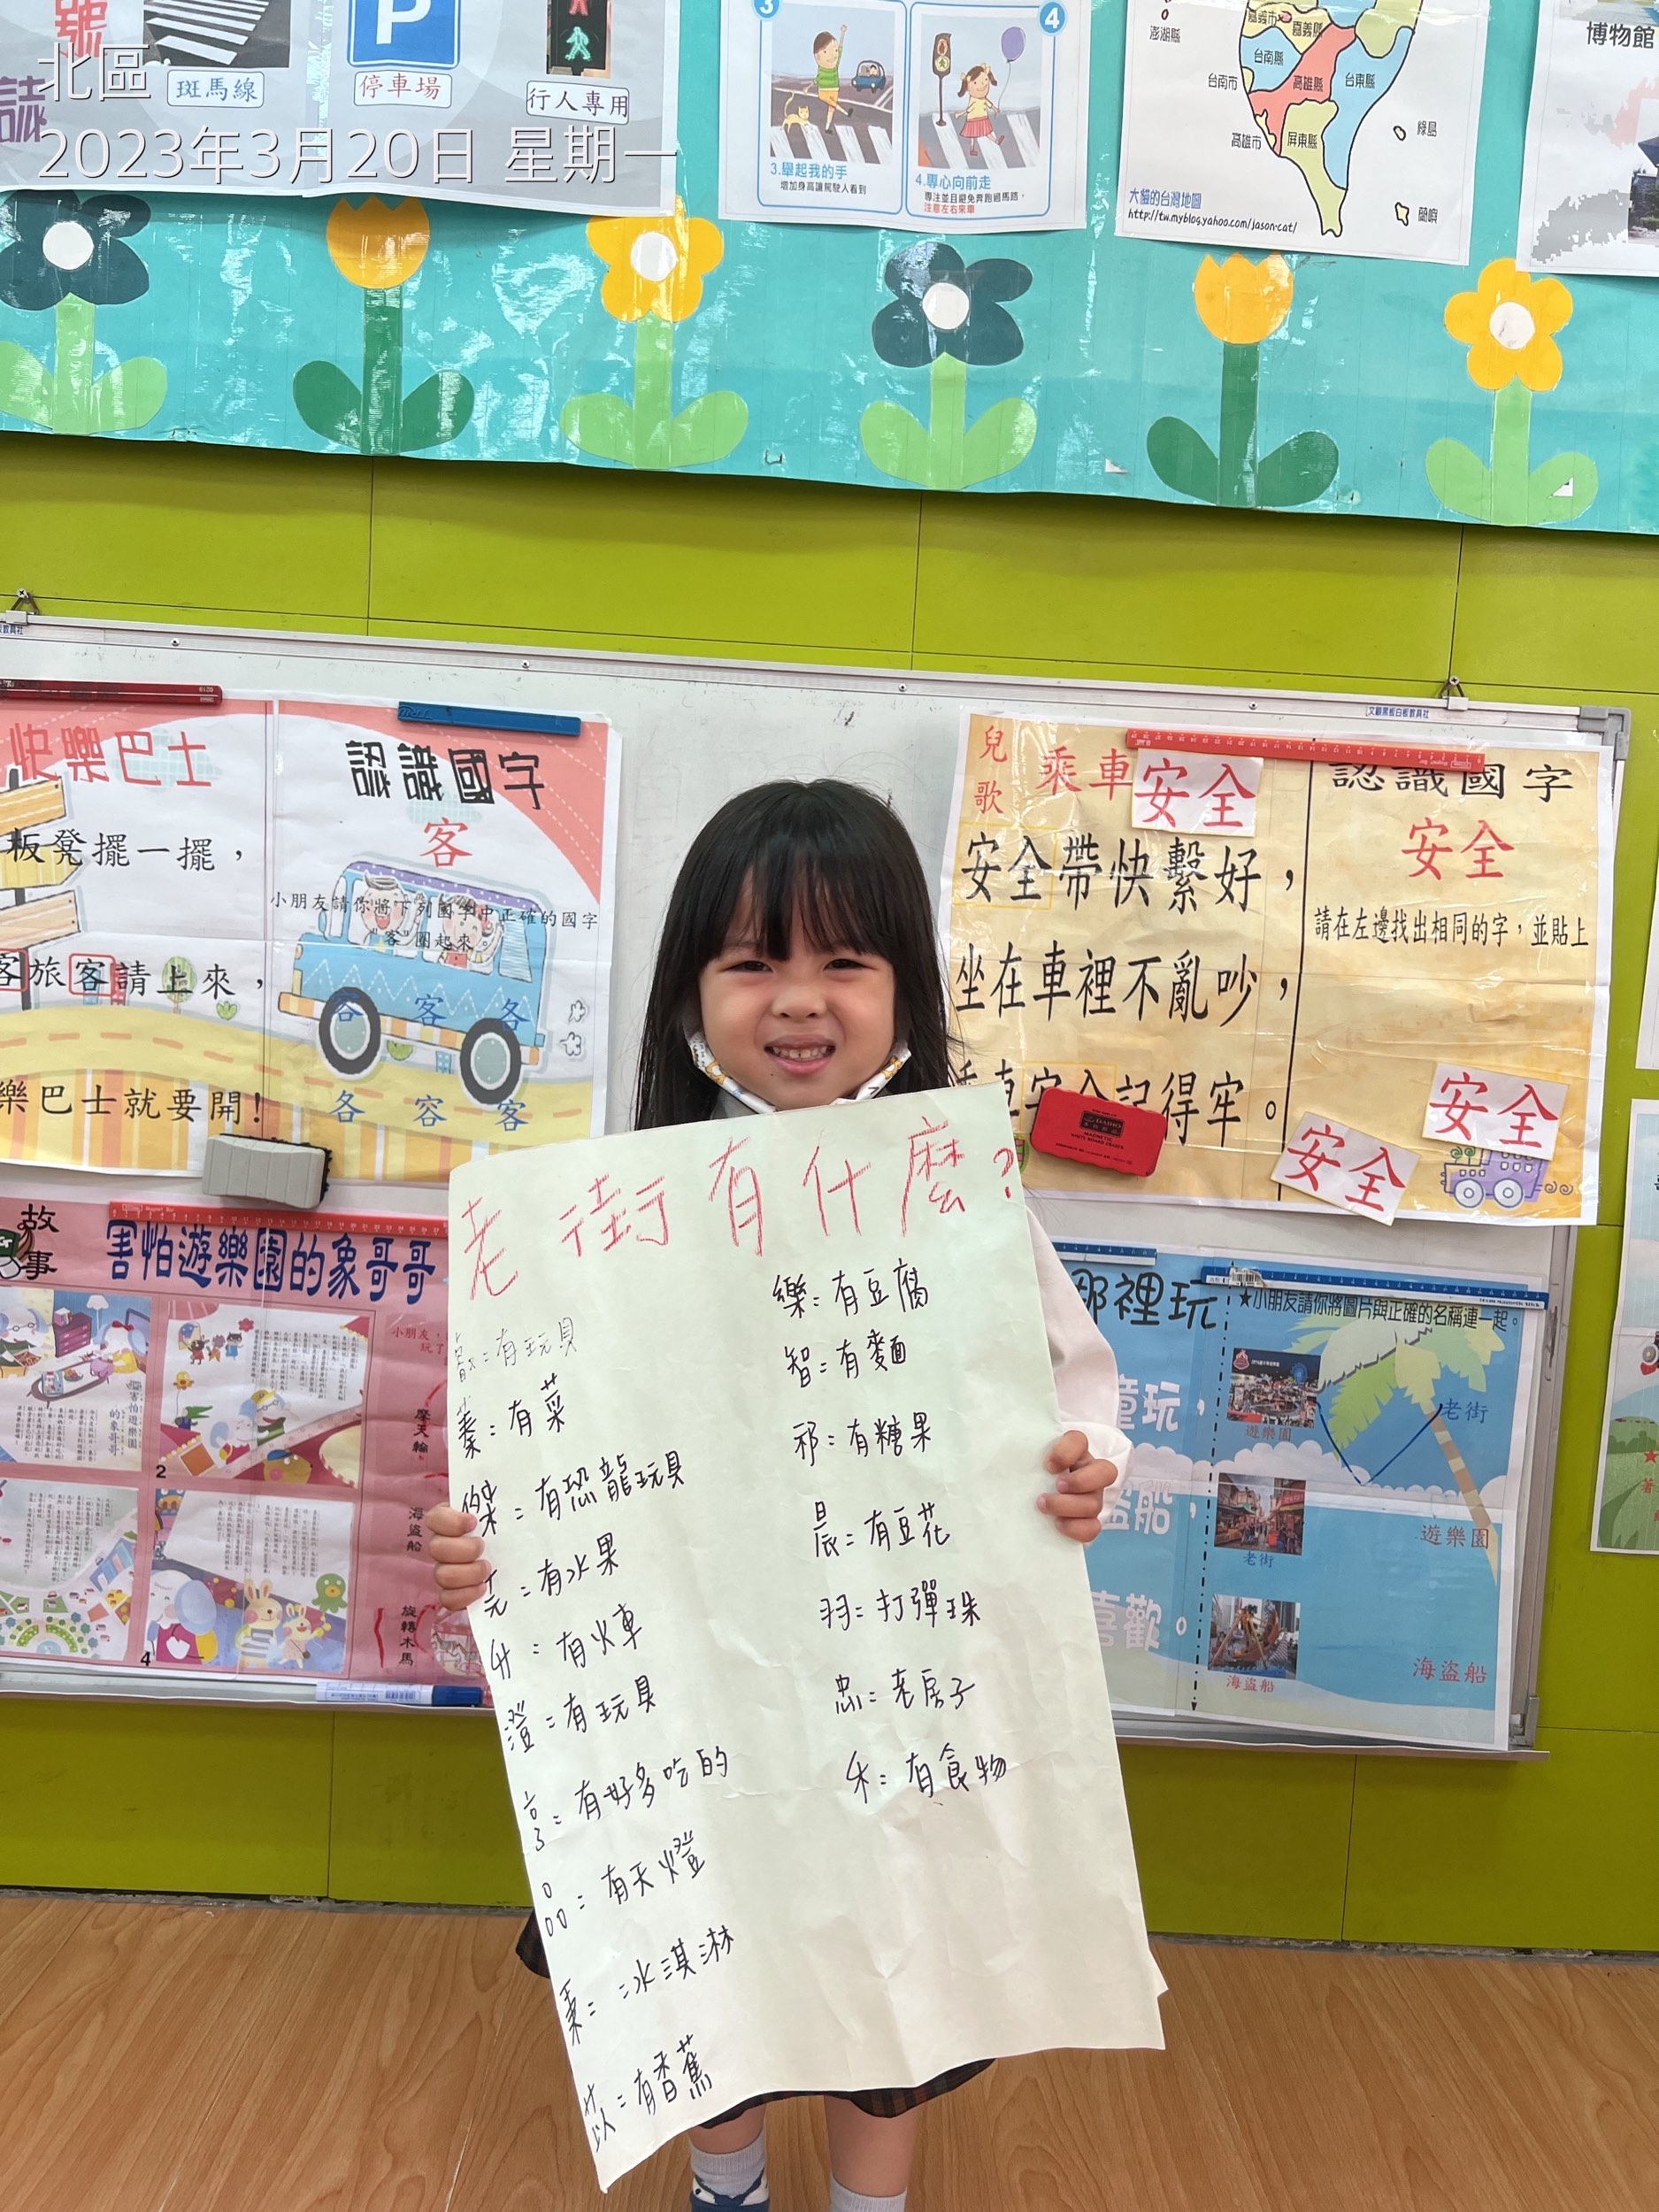 北區
2023年3月20日 星期一
斑馬線
停車場
行人專用
3
4
3.舉起我的手
增加身高讓駕駛人看到
4.專心向前走
專注並且避免奔跑過馬路，
注意左右來車
澎湖縣
嘉義市
嘉義縣
台南縣
台南市
高雄縣
台東縣
高雄市
屏東縣
綠島
蘭嶼
大貓的台灣地圖
http://tw.myblog.yahoo.com/jason-cat/
博物館
快樂巴士
板凳擺一擺，
客旅客請上來，
樂巴士就要開！
認識國字
客
小朋友請你將下列國字中正確的國字
"客"圈起來。
客 客 各
各 容 客
兒歌
乘車安全
安全帶快繫好，
坐在車裡不亂吵，
乘車安全記得牢。
認識國字
安全
請在左邊找出相同的字，並貼上
安全
安全
故事
害怕遊樂園的象哥哥
摩天輪
海盜船
旋轉木馬
2
4
哪裡玩
★小朋友請你將圖片與正確的名稱連一起。
童玩，
盜船，
喜歡。
遊樂園
老街
海盜船
老街
遊樂園
海盜船
老街有什麼？
有玩具
蓁：有菜
傑：有恐龍玩具
元：有水果
升：有火車
澄：有玩具
有好多吃的
品：有天燈
冰淇淋
苡：有香蕉
樂：有豆腐
智：有麵
祁：有糖果
晨：有豆花
羽：打彈珠
忠：老房子
禾：有食物